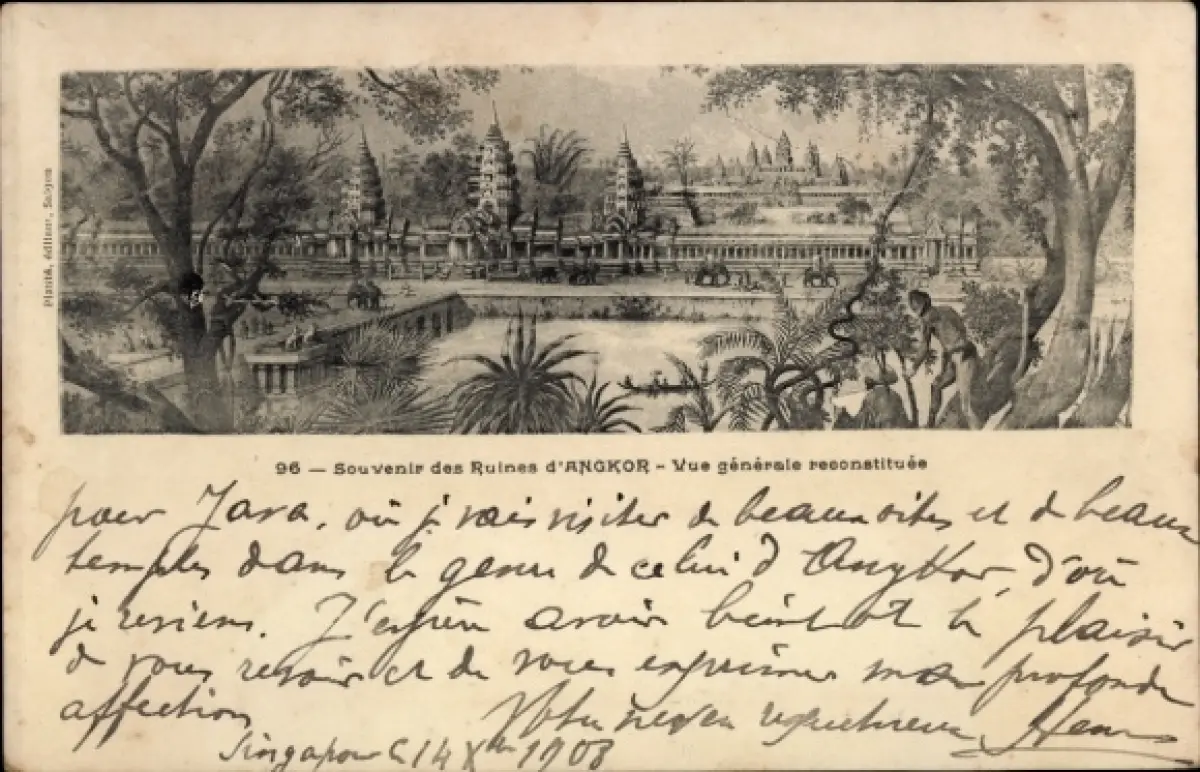 Planté, éditeur, Saïgon
96 — Souvenir des Ruines d'ANGKOR - Vue générale reconstituée
pour Java, où je vais visiter de beaux sites et de beaux
temples dans le genre de celui d'Angkor, d'où
je reviens. J'espère avoir bientôt le plaisir
de vous revoir et de vous exprimer ma profonde
affection
Votre neveu respectueux Henri
Singapour le 14 Xbre 1908